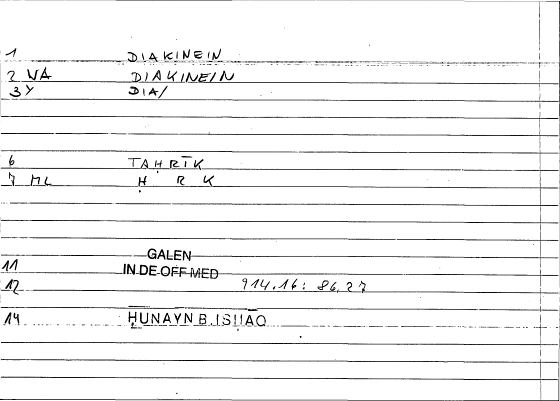 1 DIAKINEIN
2 WA DIAKINEIN
3 Y DIA/
6 TAḤRĪK
7 ML Ḥ R K
11 GALEN IN DE OFF MED
12 914.16: 86,27
14 ḤUNAYN B. ISḤĀQ